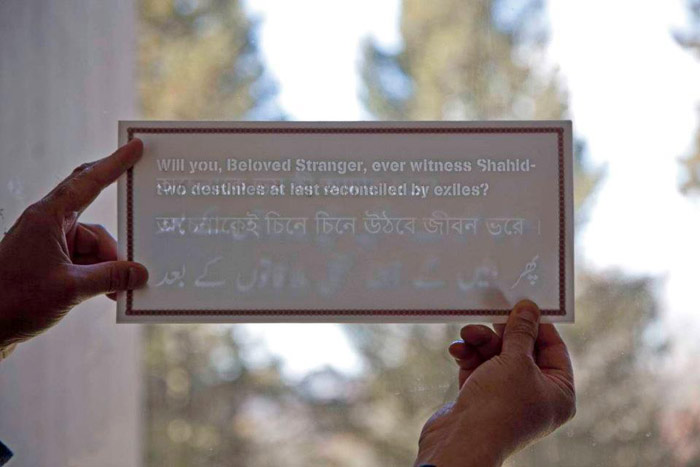 Will you, Beloved Stranger, ever witness Shahid-
two destinies at last reconciled by exiles?
চিনে চিনে উঠবে জীবন ভরে
پھر بنیں گے کتنی ملاقاتوں کے بعد